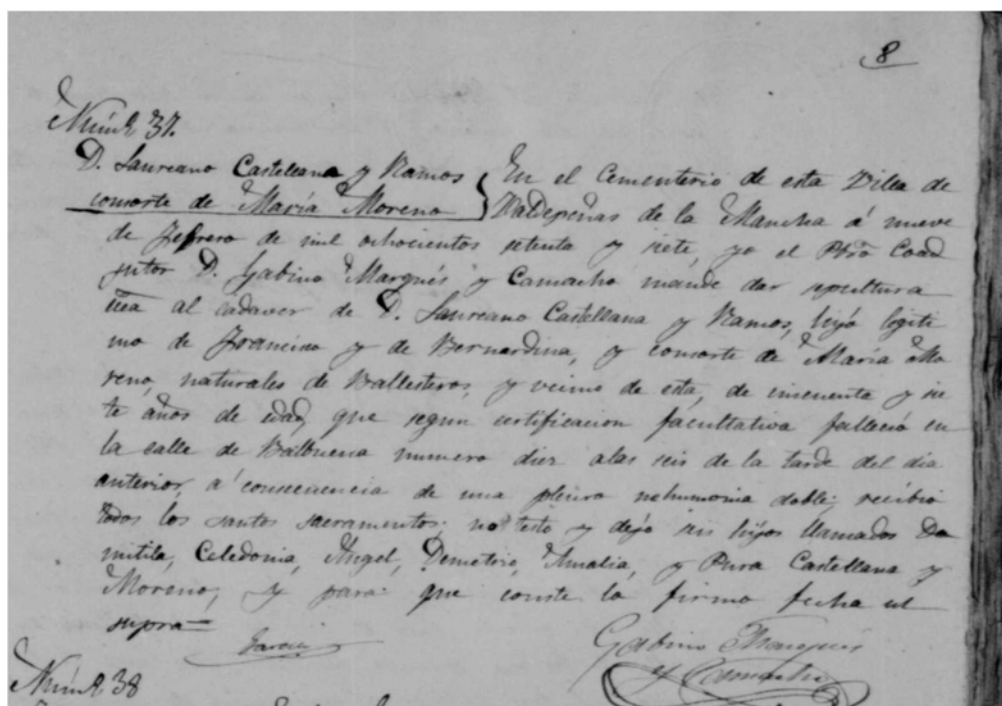 8
Núm.º 37.
D. Laureano Castellana y Ramos
consorte de María Moreno
En el Cementerio de esta Villa de
Valdepeñas de la Mancha á nueve
de Febrero de mil ochocientos setenta y siete, yo el Pbrō Coad
jutor D. Gabino Marqués y Camacho mandé dar sepultura
al cadaver de D. Laureano Castellana y Ramos, hijo legiti
mo de Francisco y de Bernardina, y consorte de María Mo
reno, naturales de Ballesteros, y vecino de esta, de cincuenta y sie
te años de edad, que segun certificacion facultativa falleció en
la calle de Balbuena numero diez alas seis de la tarde del dia
anterior, á consecuencia de una pleuro nehumonia doble; recibió
todos los santos sacramentos; no testó y dejó seis hijos llamados Do
mitila, Celedonia, Ángel, Demetrio, Amalia, y Pura Castellana y
Moreno; y para que conste lo firmo fecha ut
supra=
Garcia
Gabino Marques
y Camacho
Núm.º 38